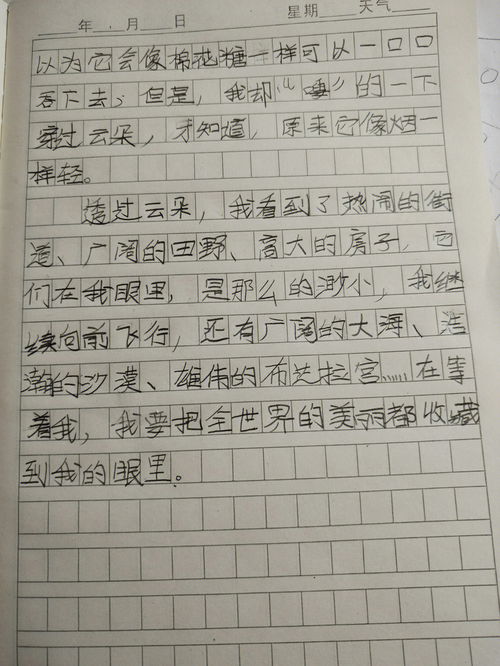 年 月 日 星期 天气
以为它会像棉花糖一样可以一口口
吞下去,但是,我却“唾”的一下
穿过云朵,才知道,原来它像烟一
样轻。
透过云朵,我看到了热闹的街
道、广阔的田野、高大的房子,它
们在我眼里,是那么的渺小,我继
续向前飞行,还有广阔的大海、浩
瀚的沙漠、雄伟的布达拉宫……在等
着我,我要把全世界的美丽都收藏
到我的眼里。